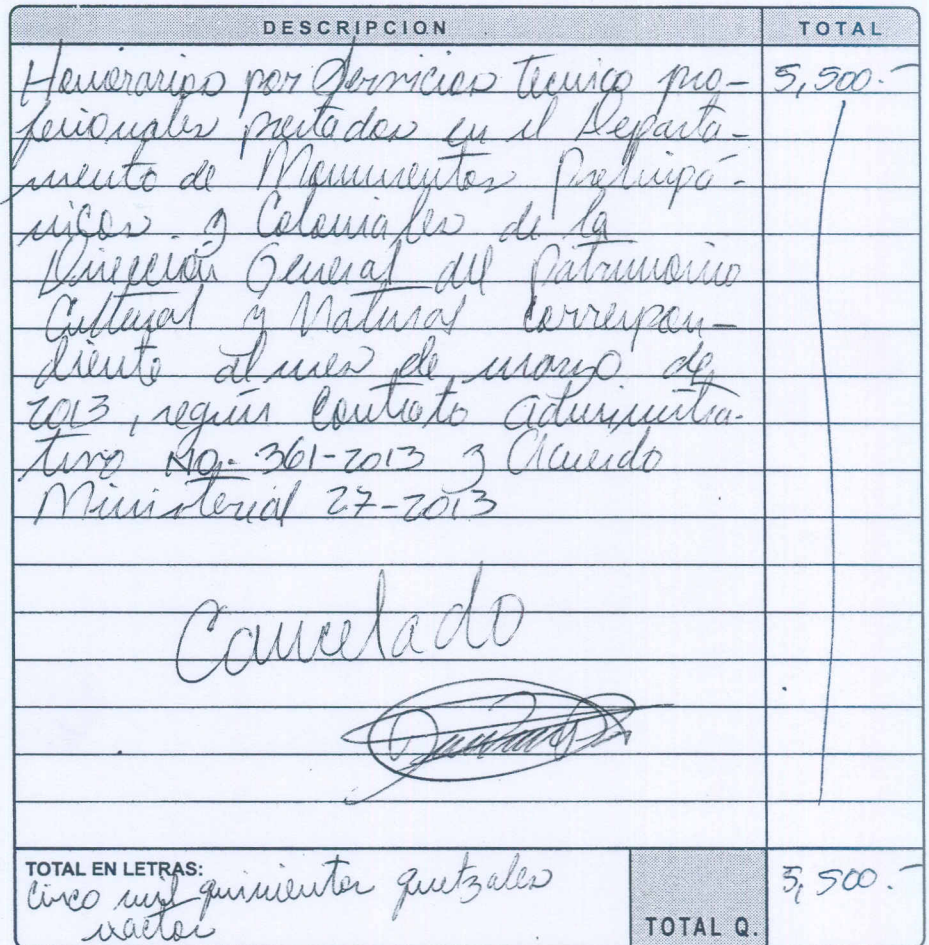 DESCRIPCION TOTAL
Honorarios por Servicios Tecnico pro- 5,500.-
fesionales prestados en el Departa-
mento de Monumentos Prehispá-
nicos y Coloniales de la
Dirección General del Patrimonio
Cultural y Natural Correspon-
diente al mes de marzo de
2013, según Contrato Administra-
tivo No.- 361-2013 y Acuerdo
Ministerial 27-2013
Cancelado
TOTAL EN LETRAS:
Cinco mil quinientos quetzales 5,500.-
exactos
TOTAL Q.